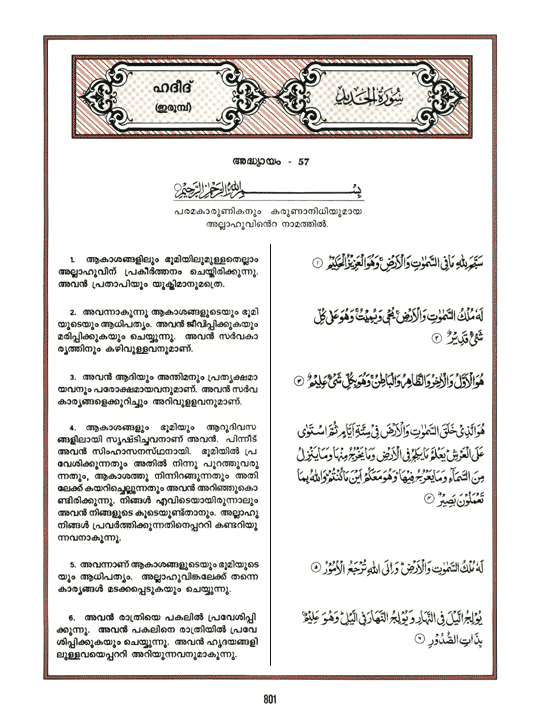 ഹദീദ്
(ഇരുമ്പ്)
سُورَةُ الحَدِيدِ
അദ്ധ്യായം - 57
بِسْمِ اللهِ الرَّحْمٰنِ الرَّحِيْمِ
പരമകാരുണികനും കരുണാനിധിയുമായ
അല്ലാഹുവിൻെറ നാമത്തിൽ.
1. ആകാശങ്ങളിലും ഭൂമിയിലുമുള്ളതെല്ലാം
അല്ലാഹുവിന് പ്രകീർത്തനം ചെയ്തിരിക്കുന്നു.
അവൻ പ്രതാപിയും യുക്തിമാനുമത്രെ.
سَبَّحَ لِلّٰهِ مَا فِى السَّمٰوٰتِ وَالْاَرْضِ ۚ وَهُوَ الْعَزِيْزُ الْحَكِيْمُ ١
2. അവന്നാകുന്നു ആകാശങ്ങളുടെയും ഭൂമി
യുടെയും ആധിപത്യം. അവൻ ജീവിപ്പിക്കുകയും
മരിപ്പിക്കുകയും ചെയ്യുന്നു. അവൻ സർവകാ
ര്യത്തിനും കഴിവുള്ളവനുമാണ്.
لَهٗ مُلْكُ السَّمٰوٰتِ وَالْاَرْضِ ۚ يُحْيٖ وَيُمِيْتُ ۚ وَهُوَ عَلٰى كُلِّ
شَىْءٍ قَدِيْرٌ ٢
3. അവൻ ആദിയും അന്തിമനും പ്രത്യക്ഷമാ
യവനും പരോക്ഷമായവനുമാണ്. അവൻ സർവ
കാര്യങ്ങളെക്കുറിച്ചും അറിവുളളവനുമാണ്.
هُوَ الْاَوَّلُ وَالْاٰخِرُ وَالظَّاهِرُ وَالْبَاطِنُ ۚ وَهُوَ بِكُلِّ شَىْءٍ عَلِيْمٌ ٣
4. ആകാശങ്ങളും ഭൂമിയും ആറുദിവസ
ങ്ങളിലായി സൃഷ്ടിച്ചവനാണ് അവൻ. പിന്നീട്
അവൻ സിംഹാസനസ്ഥനായി. ഭൂമിയിൽ പ്ര
വേശിക്കുന്നതും അതിൽ നിന്നു പുറത്തുവരു
ന്നതും, ആകാശത്തു നിന്നിറങ്ങുന്നതും അതി
ലേക്ക് കയറിച്ചെല്ലുന്നതും അവൻ അറിഞ്ഞുകൊ
ണ്ടിരിക്കുന്നു. നിങ്ങൾ എവിടെയായിരുന്നാലും
അവൻ നിങ്ങളുടെ കൂടെയുണ്ടതാനും. അല്ലാഹു
നിങ്ങൾ പ്രവർത്തിക്കുന്നതിനെപ്പററി കണ്ടറിയു
ന്നവനാകുന്നു.
هُوَ الَّذِىْ خَلَقَ السَّمٰوٰتِ وَالْاَرْضَ فِىْ سِتَّةِ اَيَّامٍ ثُمَّ اسْتَوٰى
عَلَى الْعَرْشِ ۚ يَعْلَمُ مَا يَلِجُ فِى الْاَرْضِ وَمَا يَخْرُجُ مِنْهَا وَمَا يَنْزِلُ
مِنَ السَّمَآءِ وَمَا يَعْرُجُ فِيْهَا ۚ وَهُوَ مَعَكُمْ اَيْنَ مَا كُنْتُمْ ۚ وَاللّٰهُ بِمَا
تَعْمَلُوْنَ بَصِيْرٌ ٤
5. അവന്നാണ് ആകാശങ്ങളുടെയും ഭൂമിയുടെ
യും ആധിപത്യം. അല്ലാഹുവിങ്കലേക്ക് തന്നെ
കാര്യങ്ങൾ മടക്കപ്പെടുകയും ചെയ്യുന്നു.
لَهٗ مُلْكُ السَّمٰوٰتِ وَالْاَرْضِ ۚ وَاِلَى اللّٰهِ تُرْجَعُ الْاُمُوْرُ ٥
6. അവൻ രാത്രിയെ പകലിൽ പ്രവേശിപ്പി
ക്കുന്നു. അവൻ പകലിനെ രാത്രിയിൽ പ്രവേ
ശിപ്പിക്കുകയും ചെയ്യുന്നു. അവൻ ഹൃദയങ്ങളി
ലുള്ളവയെപ്പററി അറിയുന്നവനുമാകുന്നു.
يُوْلِجُ الَّيْلَ فِى النَّهَارِ وَيُوْلِجُ النَّهَارَ فِى الَّيْلِ ۚ وَهُوَ عَلِيْمٌۢ
بِذَاتِ الصُّدُوْرِ ٦
801